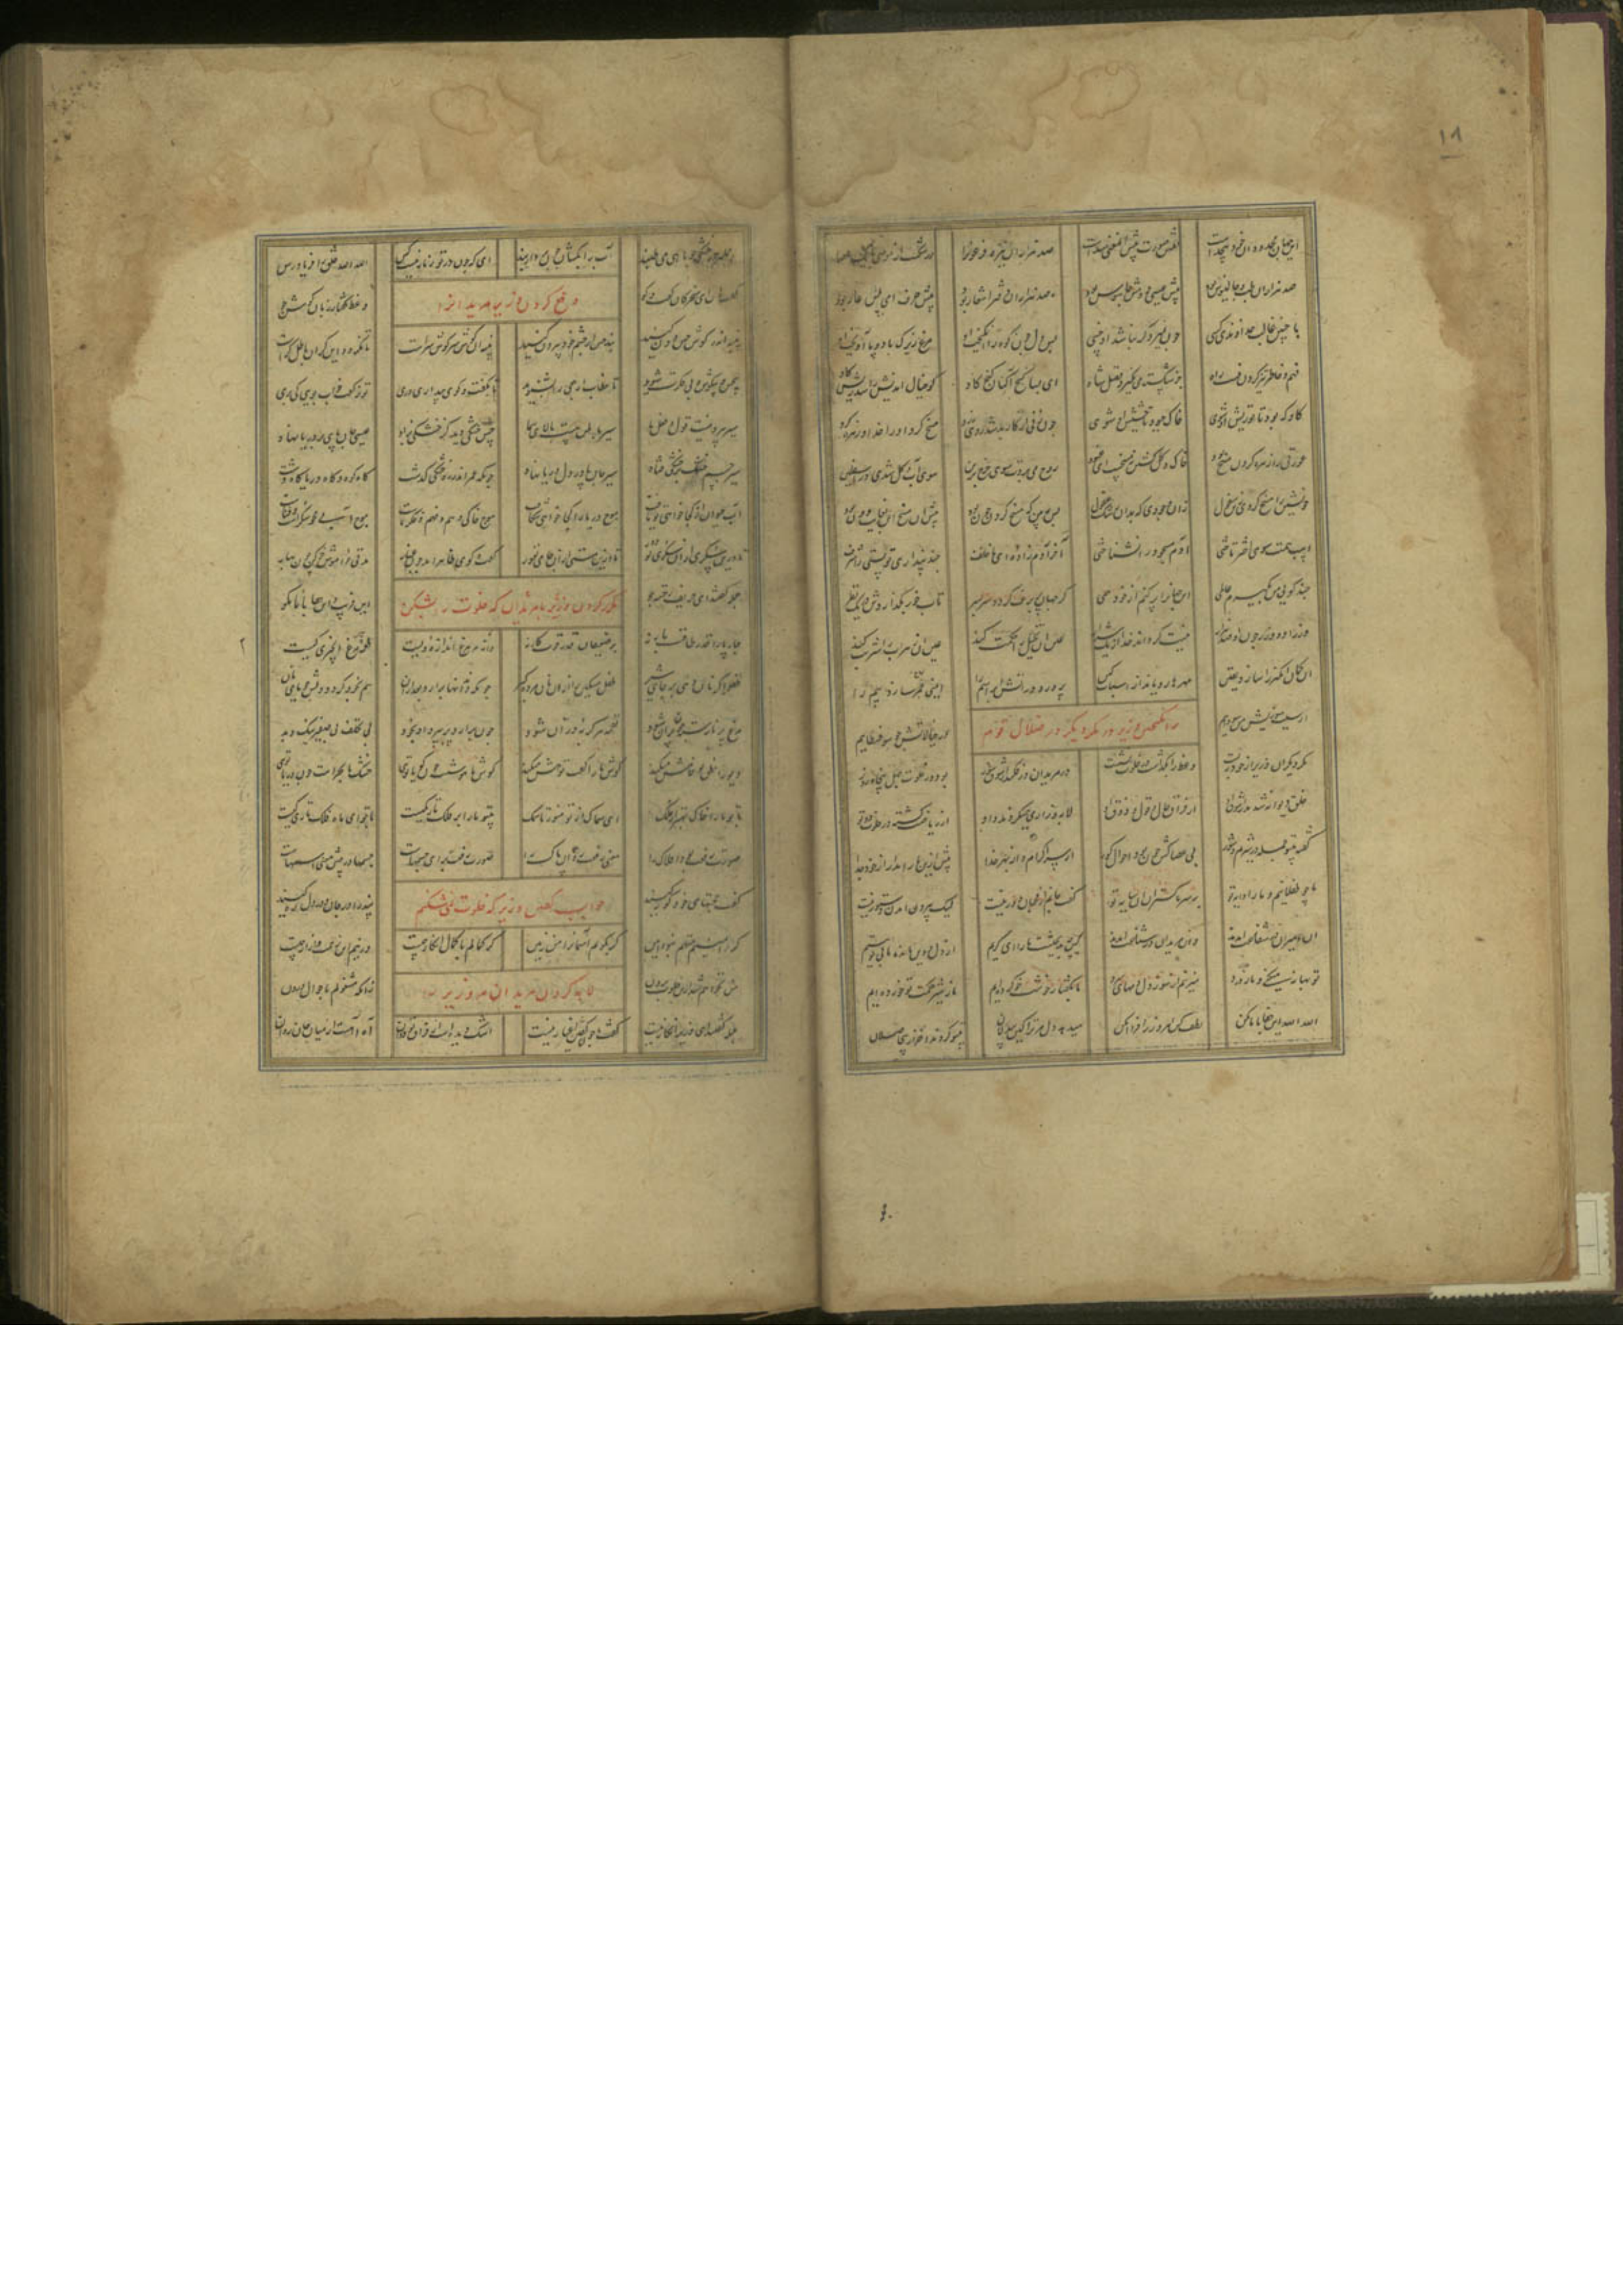 این جهان محدود و آن خود بیحدست نقش و صورت پیش آن معنی سدست صد هزاران نیزه فرعون را در شکست از موسی با یک عصا
صد هزاران طب جالینوس بود پیش عیسی و دمش افسوس بود صد هزاران دفتر اشعار بود پیش حرف امیی اش عار بود
با چنین غالب خداوندی کسی چون نمیرد گر نباشد او خسی بس دل چون کوه را انگیخت او مرغ زیرک با دو پا آویخت او
فهم و خاطر تیز کردن نیست راه جز شکسته می نگیرد فضل شاه ای بسا گنج آکنان کنج کاو کو خیال اندیش را شد ریش گاو
گاو که بود تا تو ریش او شوی خاک چه بود تا حشیش او شوی چون زنی از کار بد شد روی زرد مسخ کرد او را خدا و زهره کرد
عورتی را زهره کردن مسخ بود خاک و گل گشتن نه مسخست ای عنود روح می بردت سوی چرخ برین سوی آب و گل شدی در اسفلین
خویشتن را مسخ کردی زین سفول زان وجودی که بدان رشک عقول پس ببین که مسخ کردن چون بود پیش آن مسخ این بغایت دون بود
اسب همت سوی اختر تاختی آدم مسجود را نشناختی آخر آدم زاده ای ناخلف چند پنداری تو پستی را شرف
چند گویی من بگیرم عالمی این جهانرا پر کنم از خود همی گر جهان پر برف گردد سربسر تاب خور بگدازدش با یک نظر
وزر او و وزر چون او صد هزار نیست گرداند خدا از یک شرار عین آن تخییل را حکمت کند عین آن زهراب را شربت کند
آن گمان انگیز را سازد یقین مهرها رویاند از اسباب کین پرورد در آتش ابراهیم را ایمنی روح سازد بیم را
از سبب سوزیش من سوداییم در خیالاتش چو سوفسطاییم
انگیختن وزیر مکر دیگر در ضلال قوم
مکر دیگر آن وزیر از خود ببست وعظ را بگذاشت در خلوت نشست در مریدان در فکند از شوق سوز بود در خلوت چهل پنجاه روز
خلق دیوانه شدند از شوق او از فراق حال و قال و ذوق او لابه و زاری همی کردند و او از ریاضت گشته در خلوت دوتو
گفته بی تو نیست ما را نور بی عصاکش چون بود احوال کور از سر اکرام و از بهر خدا پیش ازین ما را مدار از خود جدا
ما چو طفلانیم و ما را دایه تو بر سر ما گستران آن سایه تو گفت جانم از محبان دور نیست لیک بیرون آمدن دستور نیست
آن امیران در شفاعت آمدند وان مریدان در شناعت آمدند کین چه بدبختیست ما را ای کریم از دل و دین مانده ما بی تو یتیم
تو بهانه میکنی و ما ز درد میزنیم از سوز دل دمهای سرد ما بگفتار خوشت خو کرده ایم ما ز شیر حکمت تو خورده ایم
الله الله این جفا با ما مکن لطف کن امروز را فردا مکن میدهد دل مر ترا کین بیدلان بی تو گردند آخر از بی حاصلان
۱۸
جمله در خشکی چو ماهی می طپند آب را بگشا ز جو بردار بند ای که چون تو در زمانه نیست کس الله الله خلق را فریاد رس
دفع کردن وزیر مریدانرا
گفت هان ای سخرگان گفت و گو وعظ گفتار زبان گوش جو
پنبه اندر گوش حس دون کنید بند حس از چشم خود بیرون کنید پنبه آن گوش سر گوش سرست تا نگردد این کر آن باطن کرست
بی حس و بی گوش و بی فکرت شوید تا خطاب ارجعی را بشنوید تا بگفت و گوی بیداری دری تو ز گفت خواب بویی کی بری
سیر بیرونیست قول و فعل ما سیر باطن هست بالای سما حس خشکی دید کز خشکی بزاد عیسی جان پای بر دریا نهاد
سیر جسم خشک بر خشکی فتاد سیر جان پا در دل دریا نهاد چونکه عمر اندر ره خشکی گذشت گاه کوه و گاه دریا گاه دشت
آب حیوان از کجا خواهی تو یافت موج دریا را کجا خواهی شکافت موج خاکی وهم و فهم و فکر ماست موج آبی محو و سکرست و فناست
تا درین سکری از آن سکری تو دور تا ازین مستی از آن جامی نفور گفت و گوی ظاهر آمد چون غبار مدتی خاموش خو کن هوش دار
مکرر کردن مریدان که خلوت را بشکن
جمله گفتند ای حکیم رخنه جو این فریب و این جفا با ما مگو
چارپا را قدر طاقت بار نه بر ضعیفان قدر قوت کار نه دانه هر مرغ اندازه ویست طعمه هر مرغ انجیری کیست
طفل را گر نان دهی بر جای شیر طفل مسکین را از آن نان مرده گیر چونکه دندانها برآرد بعد از آن هم بخود گردد دلش جویای نان
مرغ پر نارسته چون پران شود لقمه هر گربه دران شود چون برآرد پر بپرد او بخود بی تکلف بی صفیر نیک و بد
دیو را نطق تو خامش میکند گوش ما را گفت تو هش میکند گوش ما هوشست چون گویا توی خشک ما بحرست چون دریا توی
با تو ما را خاک بهتر از فلک ای سماک از تو منور تا سمک بی تو ما را بر فلک تاریکیست با تو ای ماه این فلک تاریکیست
صورت رفعت بود افلاک را معنی رفعت روان پاک را صورت رفعت برای جسمهاست جسمها در پیش معنی اسمهاست
جواب گفتن وزیر که خلوت نمی شکنم
گفت حجتهای خود کوته کنید پند را در جان و در دل ره کنید
گر امینم متهم نبود امین گر بگویم آسمانرا من زمین گر کمالم با کمال انکار چیست ور نیم این زحمت و آزار چیست
لابه کردن مریدان مر وزیر را
من نخواهم شد ازین خلوت برون زانکه مشغولم باحوال درون
جمله گفتند ای وزیر انکار نیست گفت ما چون گفتن اغیار نیست اشک دیده ست از فراق تو دوان آه آهست از میان جان روان